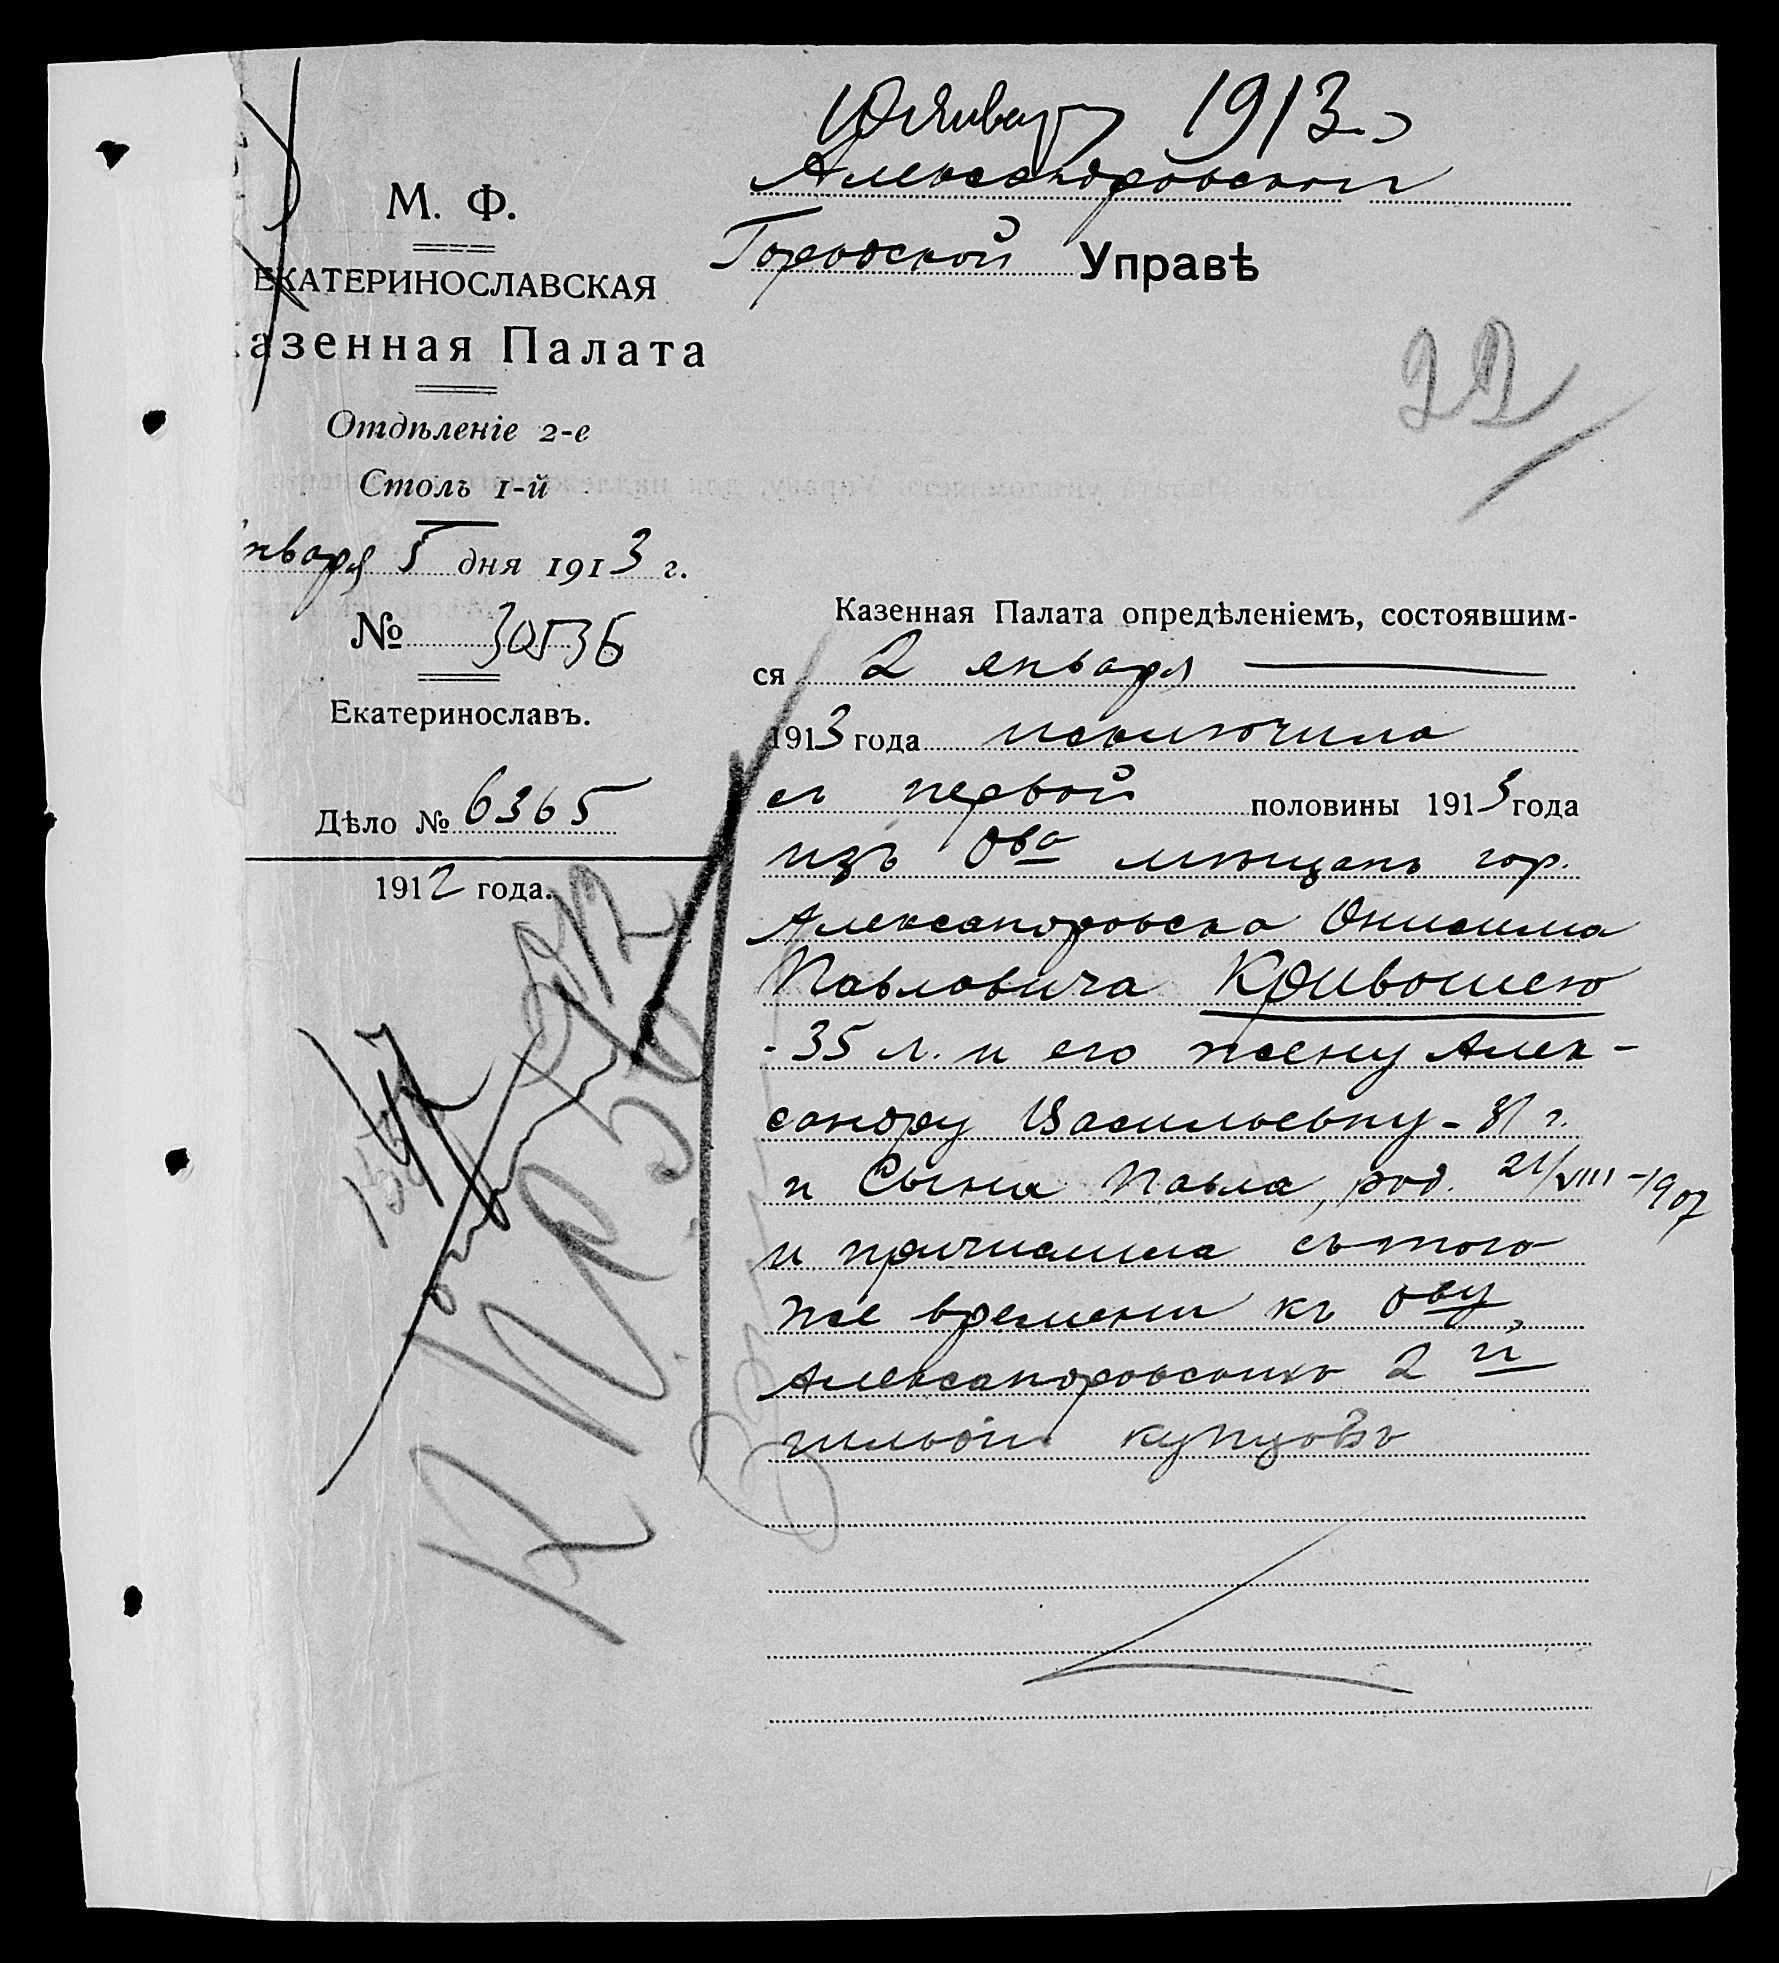 10 Января 1913 г.
Александровской
Городской Управѣ
22
М. Ф.
ЕКАТЕРИНОСЛАВСКАЯ
азенная Палата
Отдѣленіе 2-е
Столъ 1-й
нваря 5 дня 1913 г.
№ 30536
Екатеринославъ.
Дѣло № 6365
1912 года.
Казенная Палата опредѣленіемъ, состоявшим-
ся 2 января
1913 года исключила
съ первой половины 1913 года
изъ Ова мѣщанъ гор.
Александровска Онисима
Павловича Кривошею
- 35 л. и его жену Алек-
сандру Васильевну - 31 г.
и Сына Павла, род. 21/VIII - 1907
и причислила съ того
же времени къ Ову
Александровскихъ 2 й
гильдіи купцовъ